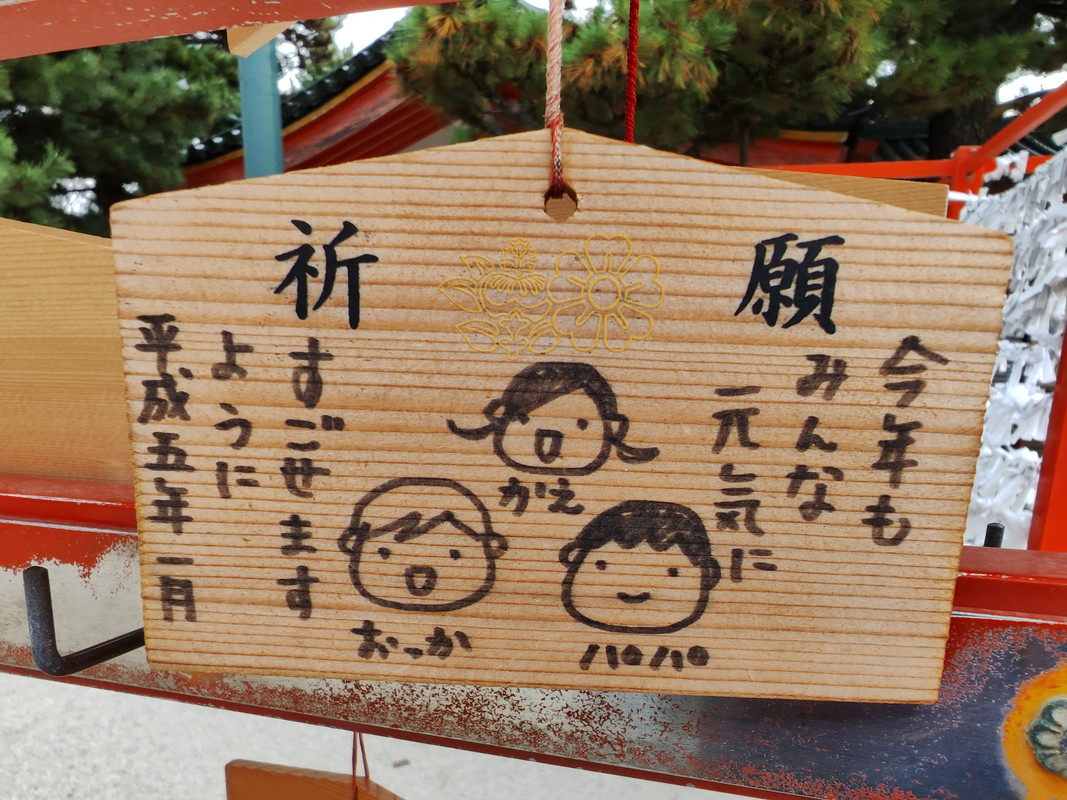 祈願
今年も
みんな
元気に
かえ
おっか
パパ
すごせます
ように
平成五年一月